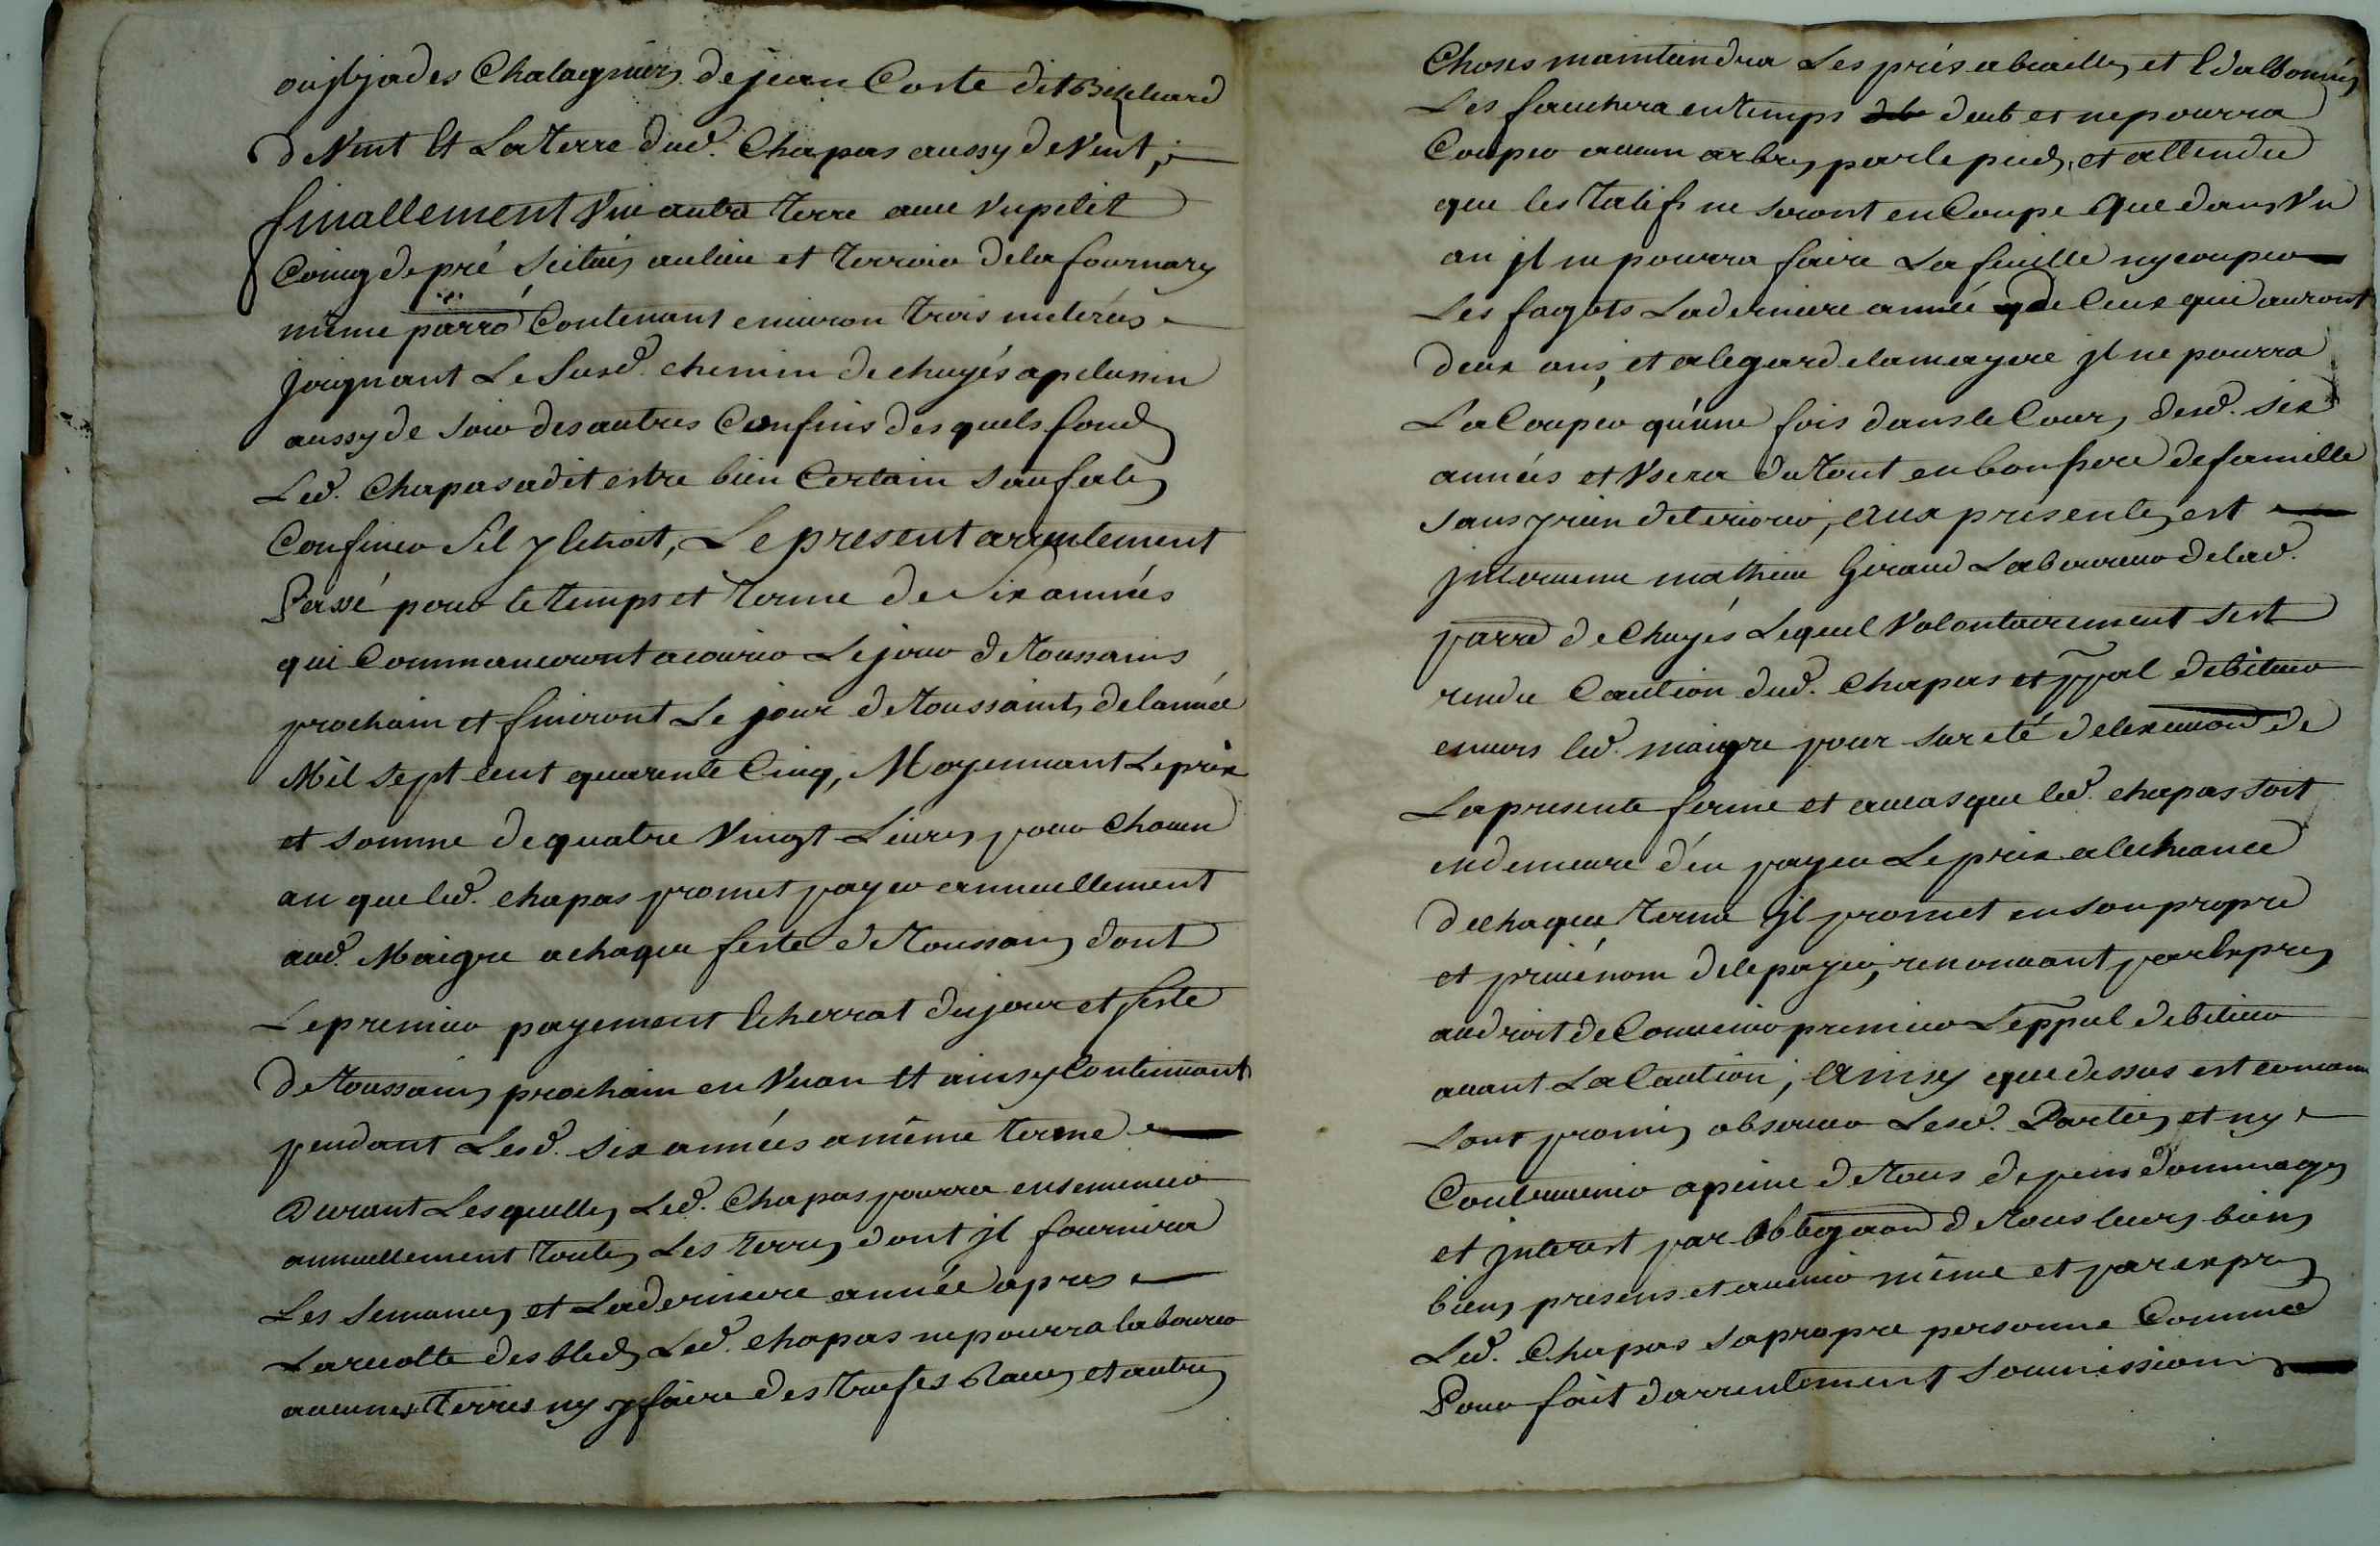 ou jl y a des Chatagniers de jean Coste dit Bi[...]chard
de Vent Et La terre dud. Chapas aussy de Vent,
finallement Vne autre terre auec Vn petit
Coing de pré Scitués au lieu et terroir de la fournary
même parro Contenant enuiron trois meterées
Joignant Le Susd. chemin de chuyés a pelussin
aussy de soir des autres Confins des quels fonds
Led. Chapas a dit estre bien Certain sauf ales
Confiner S'il y Echoit, Le present arrentement
Passé pour le temps et terme de Six années
qui Commanceront a courir Le jour de toussains
prochain et finiront Le jour de toussaints de lannée
Mil sept cent quarente Cinq, Moyennant Le prix
et somme de quatre Vingt Liures pour Chacun
an que led. chapas promet payer annuellement
aud. Maigre a chaque feste de toussains dont
Le premier payement Echerrat du jour et feste
de toussains prochain en Vn an Et ainsy Continuant
pendant Lesd. six années a même terme
Durant Les quelles Led. Chapas pourra ensemencer
annuellement toutes Les terres dont jl fournira
Les semances et La derniere année apres
La recolte des bleds Led. chapas ne pourra labourer
aucunes terres ny y faire des trufes Raues et autres
Choses maintiendra Les prés abeallés et Edalbonnés
Les fauchera en temps deub et ne pourra
Couper aucun arbres par le pied, et attendu
que les talifs ne seront en Coupe Que dans Vn
an jl ne pourra faire La feuille ny couper
Les fagots La derniere année que de Ceux qui auront
deux ans, et alegard de la mayere jl ne pourra
La Couper qu'une fois dans le Cours desd. six
années et Vsera du tout en bon pere de famille
sans y rien deteriorer, Aux presentes est
jnteruenu mathieu Giraud Laboureur de lad.
parre de Chuyés Lequel Volontairement sest
rendu Caution dud. Chapas et ppal debiteur
enuers led. maigre pour sureté de lexeuon de
La presente ferme et au cas que led. chapas soit
en demeure d'en payer Le prix a lecheance
de chaque terme jl promet en son propre
et priué nom de le payer, renoncant par Expres
au droit de Conuenir premier Le ppal debiteur
auant La Caution, Ainsy que dessus est conuenu
L'ont promis obseruer Lesd. Parties et ny
Contreuenir a peine de tous depens dommages
et jnterest par obligaon de tous leurs biens
biens presens et auenir même et par expres
Led. Chapas sa propre personne Comme
Pour fait darrentement soumissions